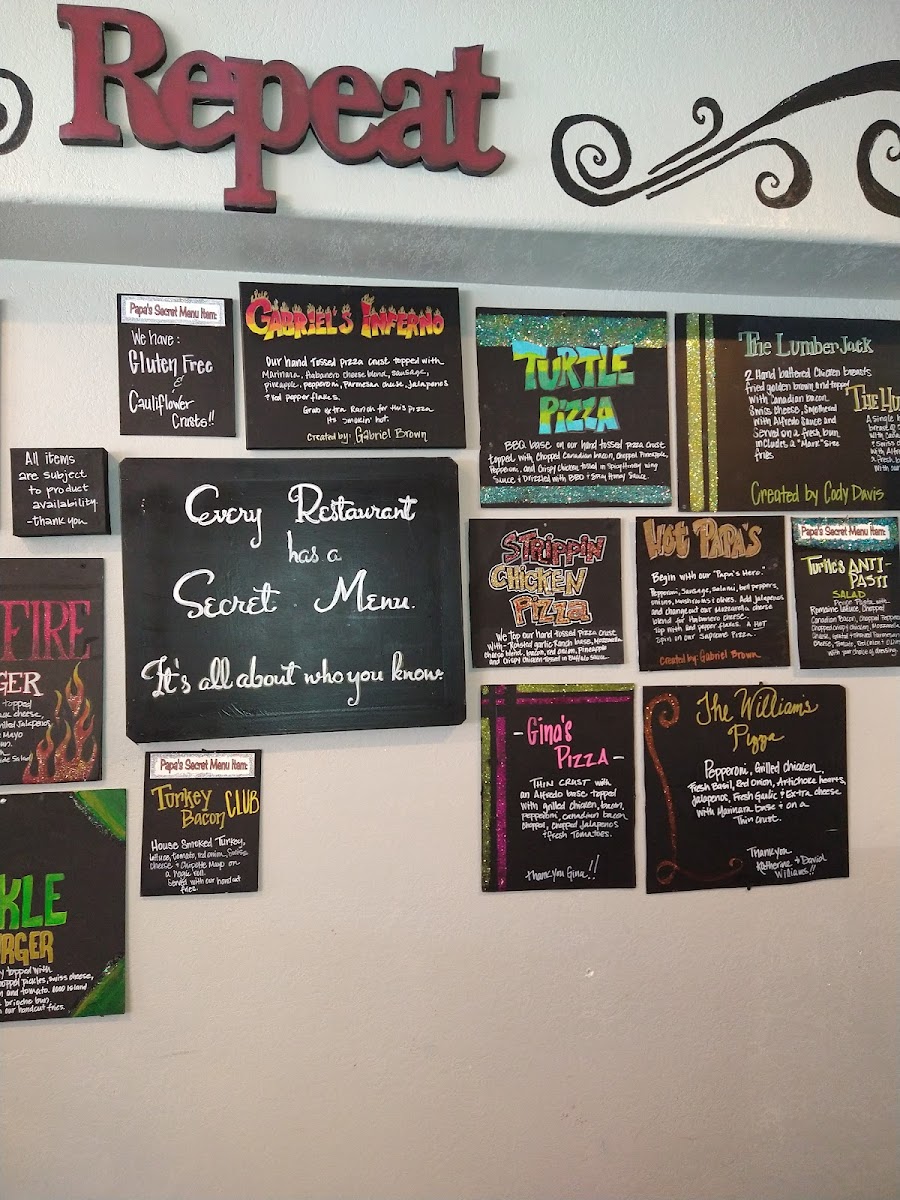 Repeat
Papa's Secret Menu Item:
We have:
Gluten Free
&
Cauliflower
Crusts!!
the
GABRIEL'S INFERNO
Our hand tossed pizza crust topped with
Marinara, Habanero cheese blend, sausage,
pineapple, pepperoni, Parmesan cheese, Jalapenos
+ Red pepper flakes.
Grab extra Ranch for this pizza
its smokin' hot.
Created by: Gabriel Brown
TURTLE
PIZZA
BBQ base on our hand tossed pizza crust
topped with chopped Canadian bacon, chopped Pineapple,
Pepperoni, and Crispy Chicken tossed in Spicy Honey wing
Sauce & Drizzled with BBQ + Spicy Honey Sauce.
The LumberJack
2 Hand battered Chicken breasts
fried golden brown and topped
with Canadian bacon
Swiss cheese, Smothered
with Alfredo Sauce and
Served on a fresh bun
includes a "Mark" size
fries
Created by Cody Davis
The Hu
A single h
breast
with Cana
+ Swiss c
with Alf
a fresh b
with our
All items
are subject
to product
availability.
-thank you
Every Restaurant
has a
Secret Menu.
It's all about who you know.
STRIPPIN
CHICKEN
PIZZA
We Top our hand tossed Pizza Crust
with - Roasted garlic Ranch base, Mozzarella
cheese blend, bacon, red onion, Pineapple
and Crispy Chicken tossed in Buffalo Sauce
HOT PAPA'S
Begin with our "Papa's Hero."
Pepperoni, Sausage, Salami, bell peppers,
onions, Mushrooms + olives. Add Jalapenos
and change out our Mozzarella cheese
blend for Habanero cheese.
Top with red pepper flakes. A HOT
Spin on our Supreme Pizza.
Created by: Gabriel Brown
Papa's Secret Menu Item:
Turtle's ANTI-
PASTI
SALAD
Penne Pasta with
Romaine lettuce, Chopped
Canadian Bacon, Chopped Pepperoni
Chopped crispy chicken, Mozzarella
Cheese,
Cheese, Tomato, Red onion
with your choice of dressing.
FIRE
GER
topped
cheese,
grilled Jalapeños
Mayo
un.
h
side Salad
Papa's Secret Menu Item:
Turkey
Bacon CLUB
House Smoked Turkey,
lettuce, tomato, red onion, Swiss
cheese + Chipotle Mayo on
a hoagie roll.
Served with our hand cut
fries.
- Gina's
PIZZA -
THIN CRUST with
an Alfredo base topped
with grilled chicken, bacon,
pepperoni, canadian bacon
chopped, chopped Jalapenos
+ fresh Tomatoes.
thank you Gina!!
The Williams
Pizza
Pepperoni, Grilled chicken,
Fresh Basil, Red onion, Artichoke hearts,
Jalapenos, Fresh Garlic + Extra cheese
with Marinara base + on a
Thin crust.
Thank you
Katherine + David
Williams!!
KLE
RGER
y topped with
chopped pickles, swiss cheese,
n and tomato. 1000 island
brioche bun.
our handcut fries.